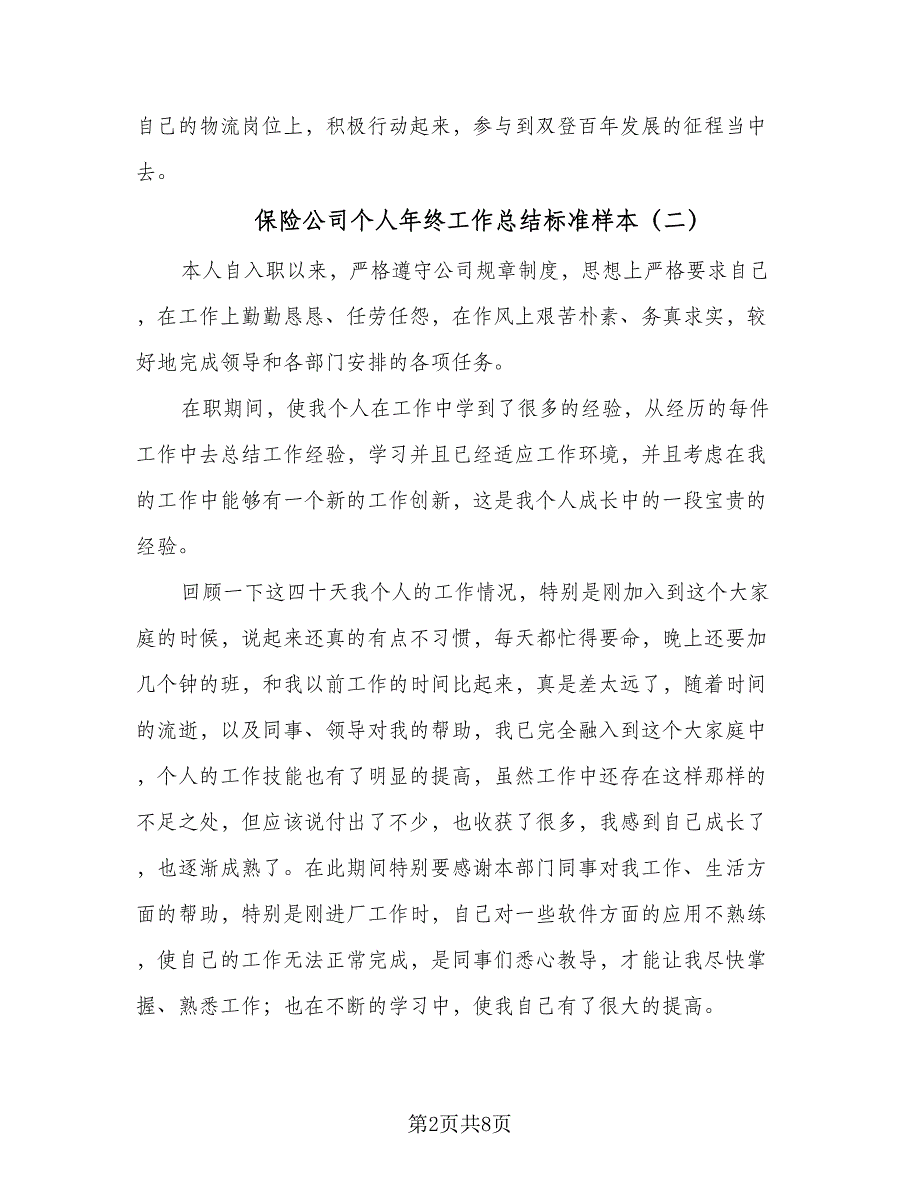 自己的物流岗位上，积极行动起来，参与到双登百年发展的征程当中
去。
保险公司个人年终工作总结标准样本（二）
本人自入职以来，严格遵守公司规章制度，思想上严格要求自己
，在工作上勤勤恳恳、任劳任怨，在作风上艰苦朴素、务真求实，较
好地完成领导和各部门安排的各项任务。
在职期间，使我个人在工作中学到了很多的经验，从经历的每件
工作中去总结工作经验，学习并且已经适应工作环境，并且考虑在我
的工作中能够有一个新的工作创新，这是我个人成长中的一段宝贵的
经验。
回顾一下这四十天我个人的工作情况，特别是刚加入到这个大家
庭的时候，说起来还真的有点不习惯，每天都忙得要命，晚上还要加
几个钟的班，和我以前工作的时间比起来，真是差太远了，随着时间
的流逝，以及同事、领导对我的帮助，我已完全融入到这个大家庭中
，个人的工作技能也有了明显的提高，虽然工作中还存在这样那样的
不足之处，但应该说付出了不少，也收获了很多，我感到自己成长了
，也逐渐成熟了。在此期间特别要感谢本部门同事对我工作、生活方
面的帮助，特别是刚进厂工作时，自己对一些软件方面的应用不熟练
，使自己的工作无法正常完成，是同事们悉心教导，才能让我尽快掌
握、熟悉工作；也在不断的学习中，使我自己有了很大的提高。
第2页共8页